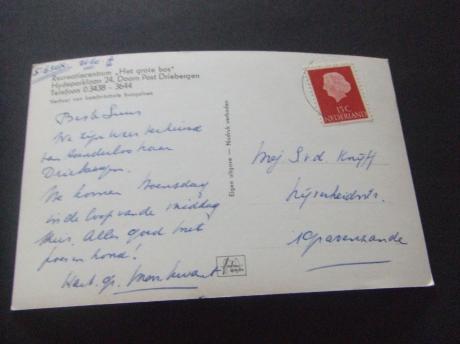 Recreatiecentrum „Het grote bos"
Hydeparklaan 24, Doorn Post Driebergen
Telefoon 03438 - 3644
Verhuur van komfortabele bungalows
Beste
We zijn weer verhuisd
van naar
Driebergen.
We komen Woensdag
in de loop van de middag
thuis. Alles goed met
poes en hond!
Hart. gr.
Eigen uitgave - Nadruk verboden
15C
NEDERLAND
Mej S. v.d. Kruyff
's Gravenzande